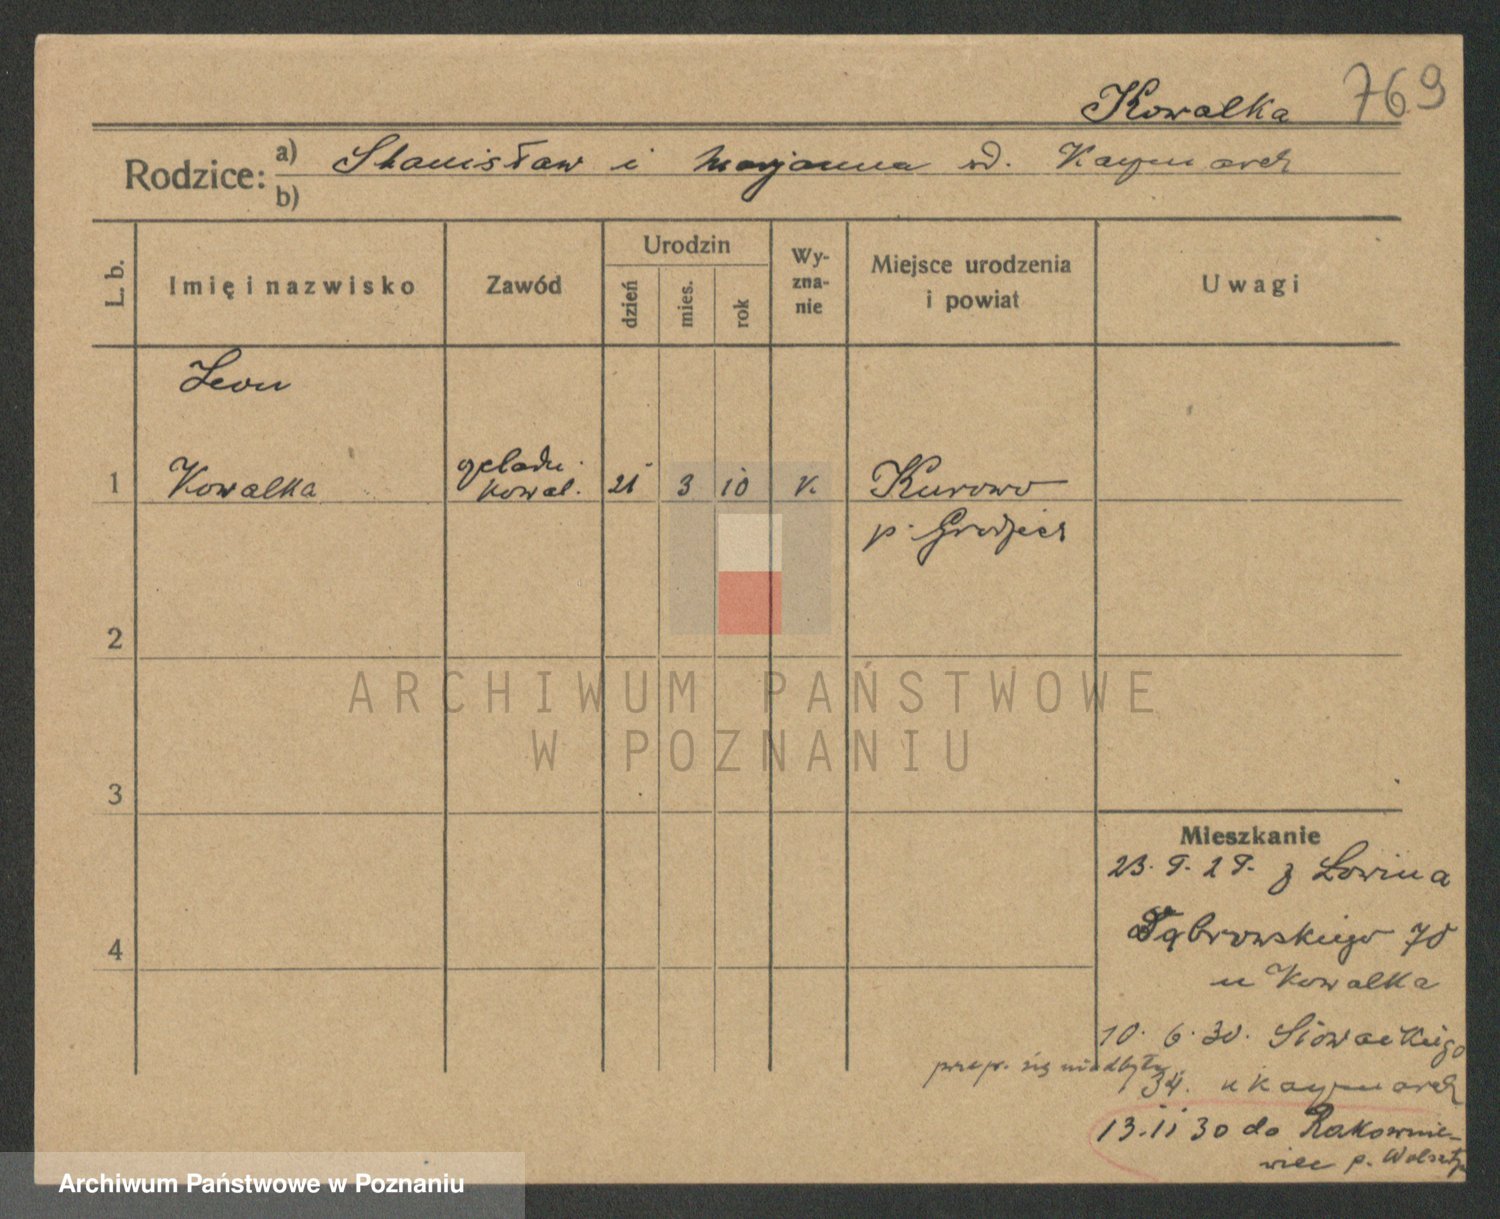 Kowalka 769
Rodzice: a) Stanisław i Marjanna rd. Kaczmarek
b)
L. b. Imię i nazwisko Zawód Urodzin dzień mies. rok Wyznanie Miejsce urodzenia i powiat Uwagi
Leon
1 Kowalka czeladn. kowal. 21 3 10 k. Kurowo
p. Grodzisk
2
ARCHIWUM PAŃSTWOWE
W POZNANIU
3
Mieszkanie
23. 9. 29. z Lowina
Dąbrowskiego 70
4
u Kowalka
10. 6. 30. Słowackiego
przepr. się nie odbyła
34. u Kaczmarek
13.11 30 do Rakownie-
wice p. Wolsztyn
Archiwum Państwowe w Poznaniu